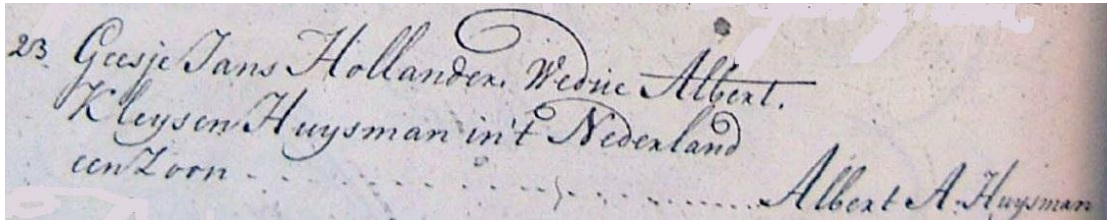 23 Geesje Jans Hollander. Wedue Albert.
Kleysen Huysman in't Nederland
een Zoon - - - - - - - - - - - - - - - Albert A. Huysman